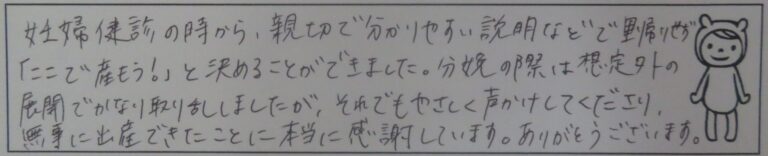 妊婦健診の時から、親切で分かりやすい説明などで里帰りせず
「ここで産もう!」と決めることができました。分娩の際は想定外の
展開でかなり取り乱しましたが、それでもやさしく声かけしてくださり、
無事に出産できたことに本当に感謝しています。ありがとうございます。